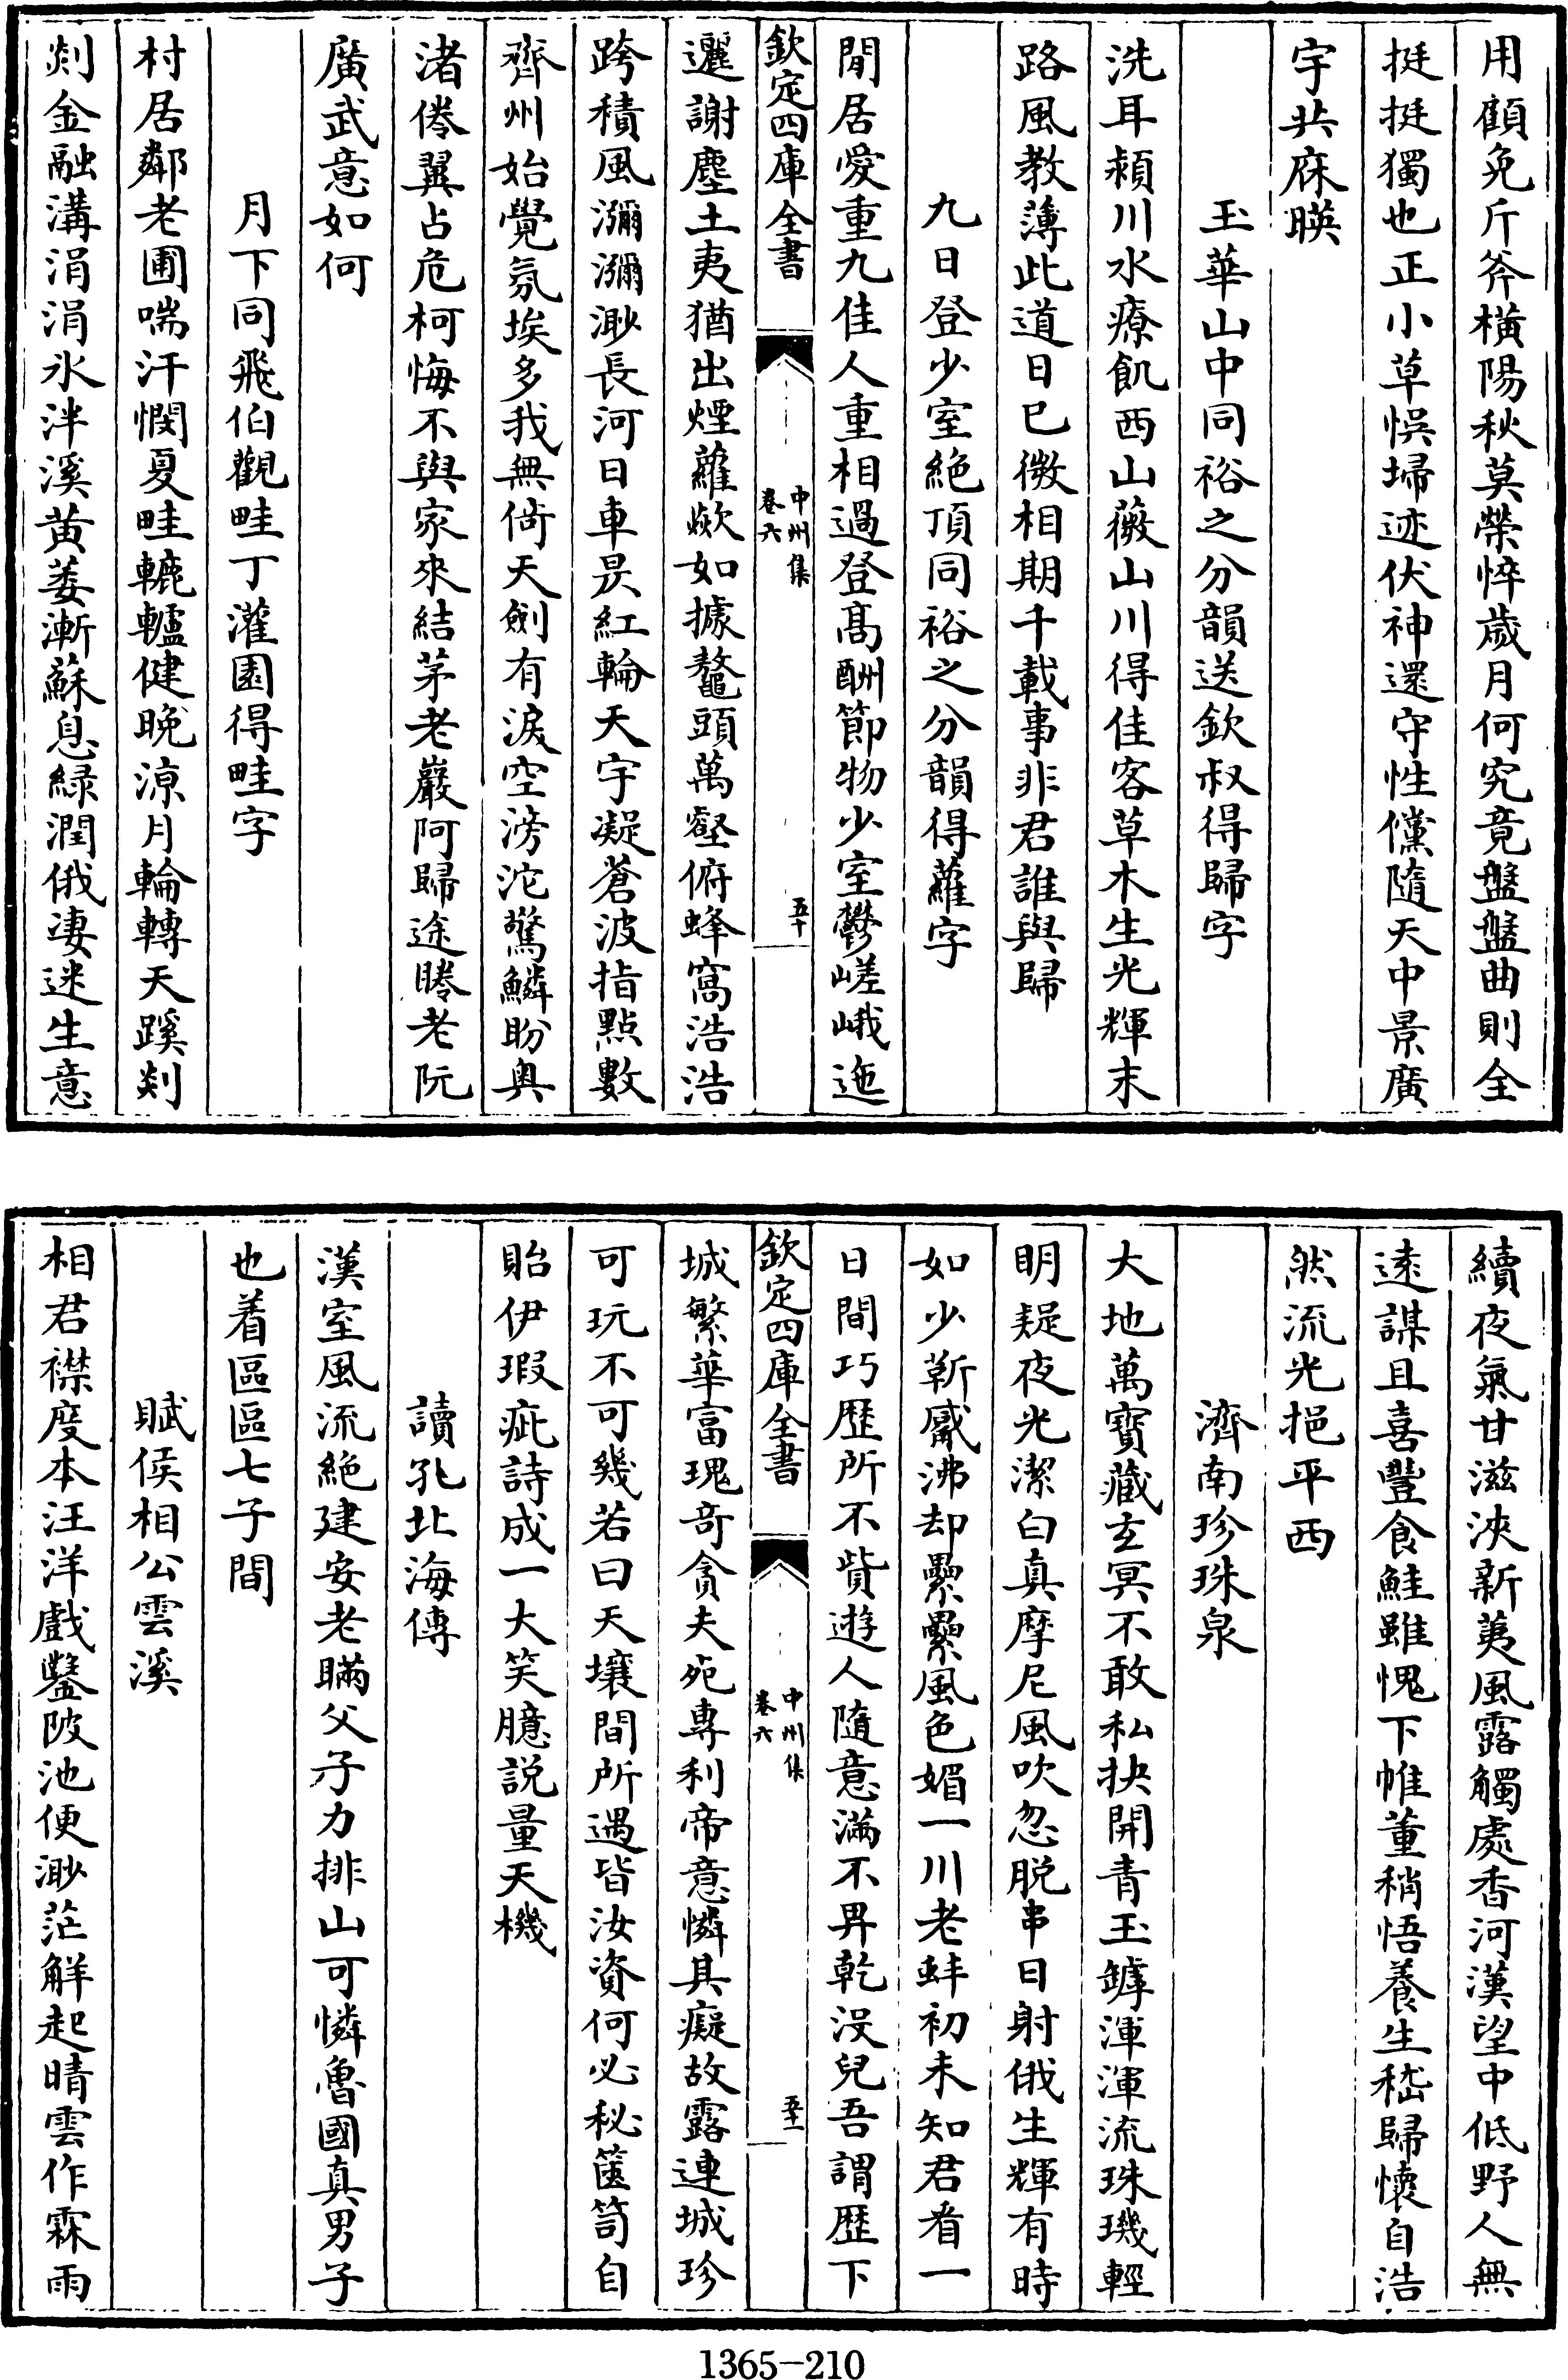 用顧免斤斧橫陽秋莫榮悴歲月何究竟盤盤曲則全
挺挺獨也正小草悞埽迹伏神還守性儻隨天中景廣
宇共庥暎
玉華山中同裕之分韻送欽叔得歸字
洗耳潁川水療飢西山薇山川得佳客草木生光輝末
路風教薄此道日已微相期千載事非君誰與歸
九日登少室絶頂同裕之分韻得蘿字
閒居愛重九佳人重相過登髙酬節物少室鬱嵯峨迤
欽定四庫全書
中州集
卷六
五十
邐謝塵土夷猶出煙蘿歘如據鼇頭萬壑俯蜂窩浩浩
跨積風瀰瀰渺長河日車昃紅輪天宇凝蒼波指點數
齊州始覺氛埃多我無倚天劍有淚空滂沱驚鱗盼奥
渚倦翼占危柯悔不與家來結茅老巖阿歸途賸老阮
廣武意如何
月下同飛伯觀畦丁灌園得畦字
村居鄰老圃喘汗憫夏畦轆轤健晚涼月輪轉天蹊剡
剡金融溝涓涓氷泮溪黄萎漸蘇息緑潤俄凄迷生意
續夜氣甘滋浹新荑風露觸處香河漢望中低野人無
逺謀且喜豐食鮭雖愧下帷董稍悟養生嵇歸懷自浩
然流光挹平西
濟南珍珠泉
大地萬寶藏玄冥不敢私抉開青玉罅渾渾流珠璣輕
明疑夜光潔白真摩尼風吹忽脱串日射俄生輝有時
如少靳觱沸却纍纍風色媚一川老蚌初未知君看一
日間巧歴所不貲遊人隨意滿不畀乾没兒吾謂歴下
欽定四庫全書
中州集
卷六
五十一
城繁華富瑰奇貪夫苑專利帝意憐其癡故露連城珍
可玩不可幾若曰天壤間所遇皆汝資何必秘篋笥自
貽伊瑕疵詩成一大笑臆説量天機
讀孔北海傳
漢室風流絶建安老瞞父子力排山可憐魯國真男子
也着區區七子間
賦侯相公雲溪
相君襟度本汪洋戲鑿陂池便渺茫解起晴雲作霖雨
1365-210